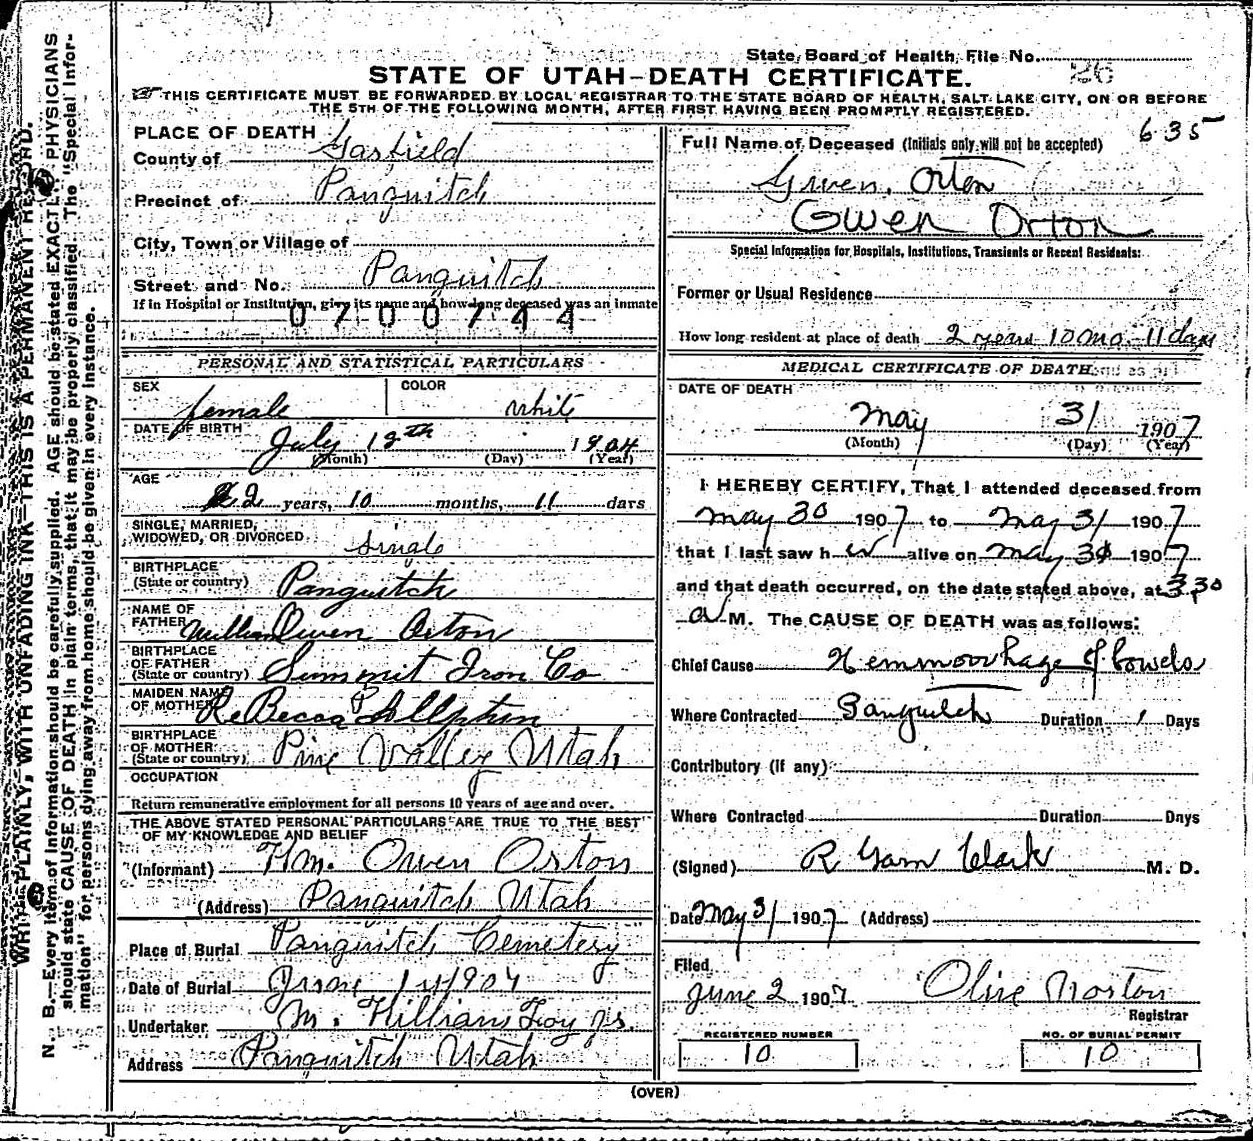 State Board of Health, File No. 26
STATE OF UTAH–DEATH CERTIFICATE.
THIS CERTIFICATE MUST BE FORWARDED BY LOCAL REGISTRAR TO THE STATE BOARD OF HEALTH, SALT LAKE CITY, ON OR BEFORE
THE 5TH OF THE FOLLOWING MONTH, AFTER FIRST HAVING BEEN PROMPTLY REGISTERED.
635
PLACE OF DEATH
County of Garfield
Precinct of Panguitch
City, Town or Village of
Street and No. Panguitch
If in Hospital or Institution, give its name and how long deceased was an inmate
0700744
PERSONAL AND STATISTICAL PARTICULARS
SEX female COLOR White
DATE OF BIRTH July 12th 1904
(Month) (Day) (Year)
AGE 2 years, 10 months, 11 days
SINGLE, MARRIED,
WIDOWED, OR DIVORCED Single
BIRTHPLACE
(State or country) Panguitch
NAME OF
FATHER William Owen Orton
BIRTHPLACE
OF FATHER
(State or country) Summit Iron Co
MAIDEN NAME
OF MOTHER ReBecca
BIRTHPLACE
OF MOTHER
(State or country) Pine Valley Utah
OCCUPATION
Return remunerative employment for all persons 10 years of age and over.
THE ABOVE STATED PERSONAL PARTICULARS ARE TRUE TO THE BEST
OF MY KNOWLEDGE AND BELIEF
(Informant) Wm. Owen Orton
(Address) Panguitch Utah
Place of Burial Panguitch Cemetery
Date of Burial June 1
Undertaker M. William
Address Panguitch Utah
Full Name of Deceased (Initials only will not be accepted)
Gwen. Orton
Gwen Orton
Special Information for Hospitals, Institutions, Transients or Recent Residents:
Former or Usual Residence
How long resident at place of death 2 years 10 mo. 11 days
MEDICAL CERTIFICATE OF DEATH.
DATE OF DEATH
May 31 1907
(Month) (Day) (Year)
I HEREBY CERTIFY, That I attended deceased from
May 30 1907 to May 31 1907
that I last saw her alive on May 31 1907
and that death occurred, on the date stated above, at 3.30
a M. The CAUSE OF DEATH was as follows:
Chief Cause Hemmoorhage of bowels
Where Contracted Panguitch Duration 1 Days
Contributory (if any)
Where Contracted Duration Days
(Signed) R Garn Clark M. D.
Date May 31 1907 (Address)
Filed
June 2 1907 Olive Norton
Registrar
REGISTERED NUMBER
10
NO. OF BURIAL PERMIT
10
(OVER)
WRITE PLAINLY, WITH UNFADING INK—THIS IS A PERMANENT RECORD.
N. B.—Every item of information should be carefully supplied. AGE should be stated EXACTLY. PHYSICIANS
should state CAUSE OF DEATH in plain terms, that it may be properly classified. The "Special Infor-
mation" for persons dying away from home should be given in every instance.